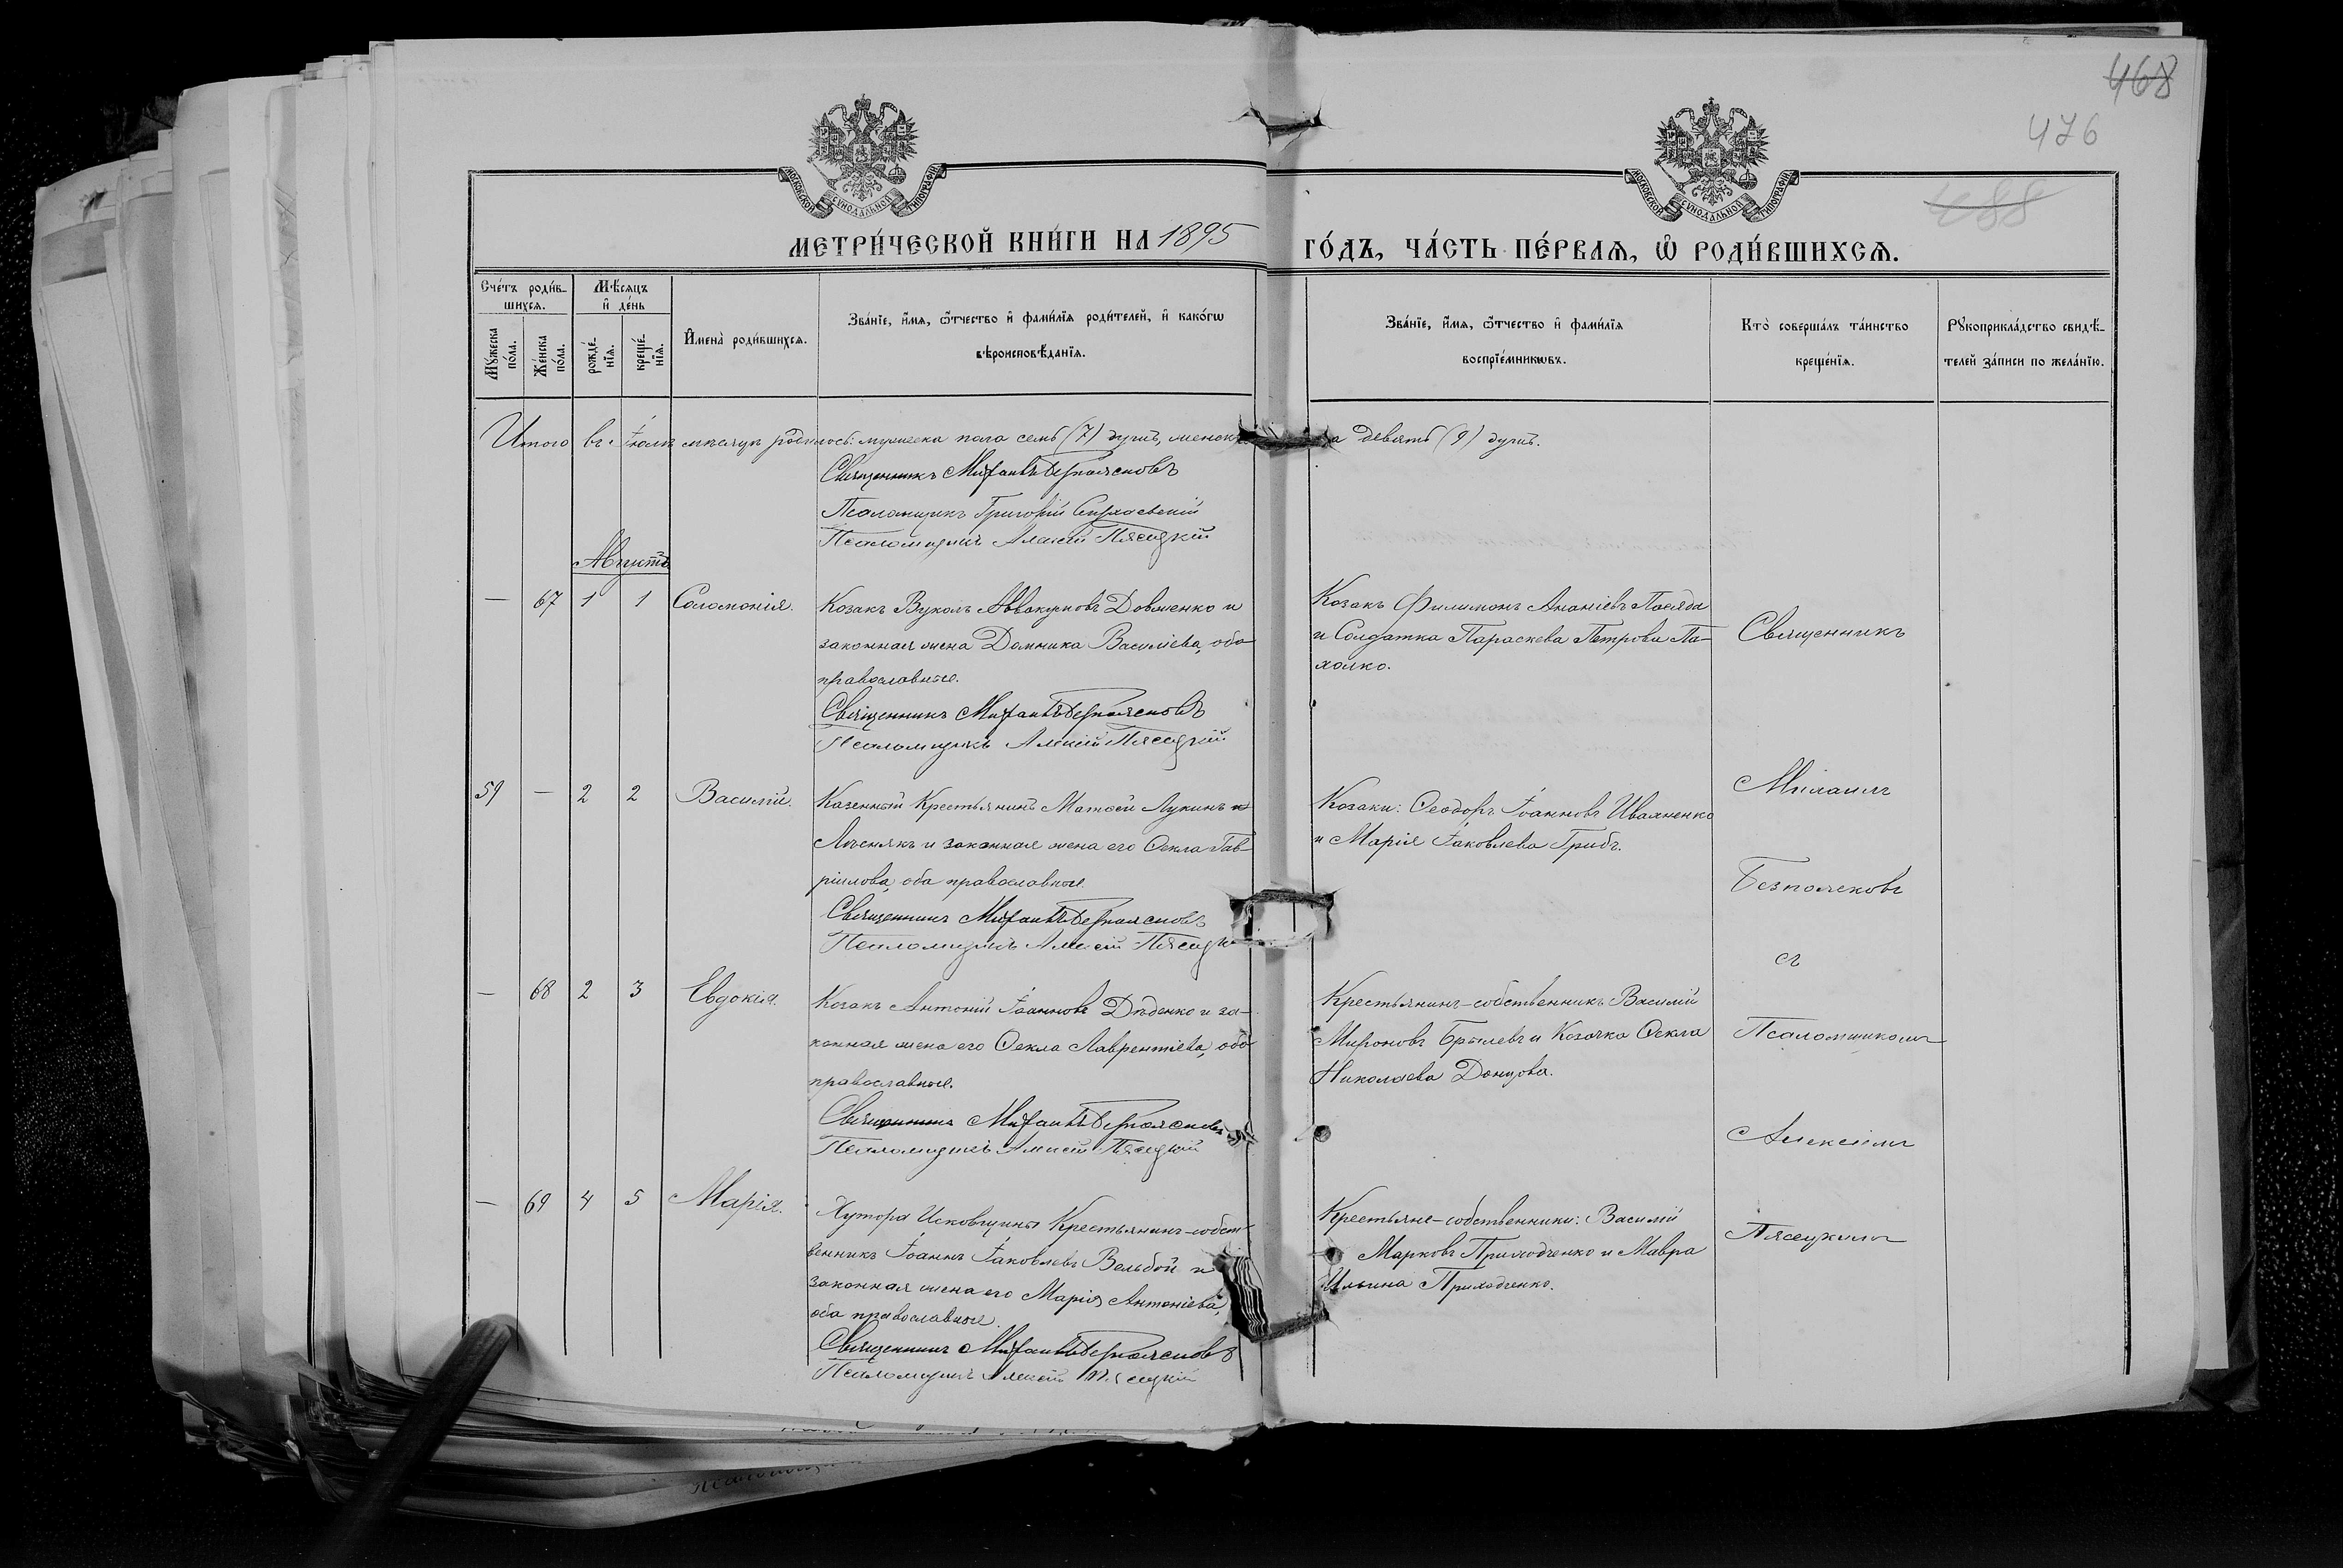 468
476
488
МОСКОВСКОЙ СѴНОДАЛЬНОЙ ТИПОГРАФІИ
МОСКОВСКОЙ СѴНОДАЛЬНОЙ ТИПОГРАФІИ
МЕТРИ́ЧЕСКОЙ КНИ́ГИ НА 1895 ГО́ДЪ, ЧА́СТЬ ПЕ́РВАЯ, Ѡ҆ РОДИ́ВШИХСЯ.
Сче́тъ роди́в-
шихся.
Мꙋ́жеска по́ла.
Же́нска по́ла.
Мѣ́сяцъ
и҆ де́нь
рожде́-
нїя.
креще́-
нїя.
И҆мена̀ роди́вшихся.
Зва́нїе, и҆́мя, ѻ҆́тчество и҆ фами́лїя роди́телей, и҆ како́гѡ
вѣроисповѣ́данїя.
Зва́нїе, и҆́мя, ѻ҆́тчество и҆ фами́лїя
воспрїе́мникѡвъ.
Кто̀ соверша́лъ та́инство
креще́нїя.
Рꙋкоприкла́дство свидѣ́-
телей за́писи по жела́нїю.
Итого въ Іюлѣ мѣсяцѣ родилось: мужеска пола семь (7) душъ, женска девять (9) душъ.
Священникъ Михаилъ Безпоясковъ
Псаломщикъ Григорій
Псаломщикъ Алексій Пясецкій
Августъ
— 67 1 1 Соломонія.
Козакъ Вуколъ Аввакумовъ Довженко и
законная жена Домника Василіева, оба
православные.
Священникъ Михаилъ Безпоясковъ
Псаломщикъ Алексій Пясецкій
Козакъ Филимонъ Ананіевъ
и Солдатка Параскева Петрова Па-
холко.
59 — 2 2 Василій.
Казенный Крестьянинъ Матѳей Лукинъ
и законная жена его Ѳекла Гав-
ріилова, оба православные.
Священникъ Михаилъ Безпоясковъ
Псаломщикъ Алексій Пясецкі
Козаки: Ѳеодоръ Іоанновъ Иваненко
и Марія Іаковлева Грибъ.
— 68 2 3 Евдокія.
Козакъ Антоній Іоанновъ Дѣденко и за-
конная жена его Ѳекла Лаврентіева, оба
православные.
Священникъ Михаилъ Безпоясковъ
Псаломщикъ Алексій Пясецкій
Крестьянинъ-собственникъ Василій
Мироновъ Брылевъ и Козачка Ѳекла
Николаева Донцова.
— 69 4 5 Марія.
Хутора Исковщины Крестьянинъ-собст-
венникъ Іоаннъ Іаковлевъ Вельбой и
законная жена его Марія Антоніева,
оба православные.
Священникъ Михаилъ Безпоясковъ
Псаломщикъ Алексій Пясецкій
Крестьяне-собственники: Василій
Марковъ Приходченко и Мавра
Ильина Приходченко.
Священникъ
Михаилъ
Безпоясковъ
съ
Псаломщикомъ
Алексіемъ
Пясецкимъ